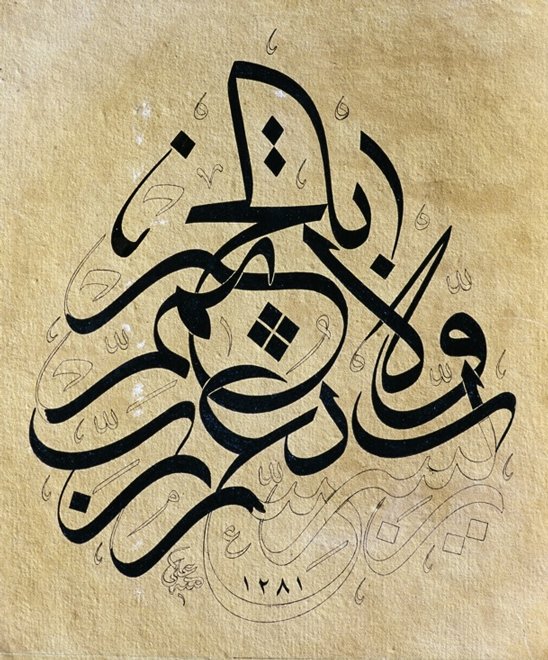 رب يسر ولا تعسر رب تمم بالخير
١٢٨١